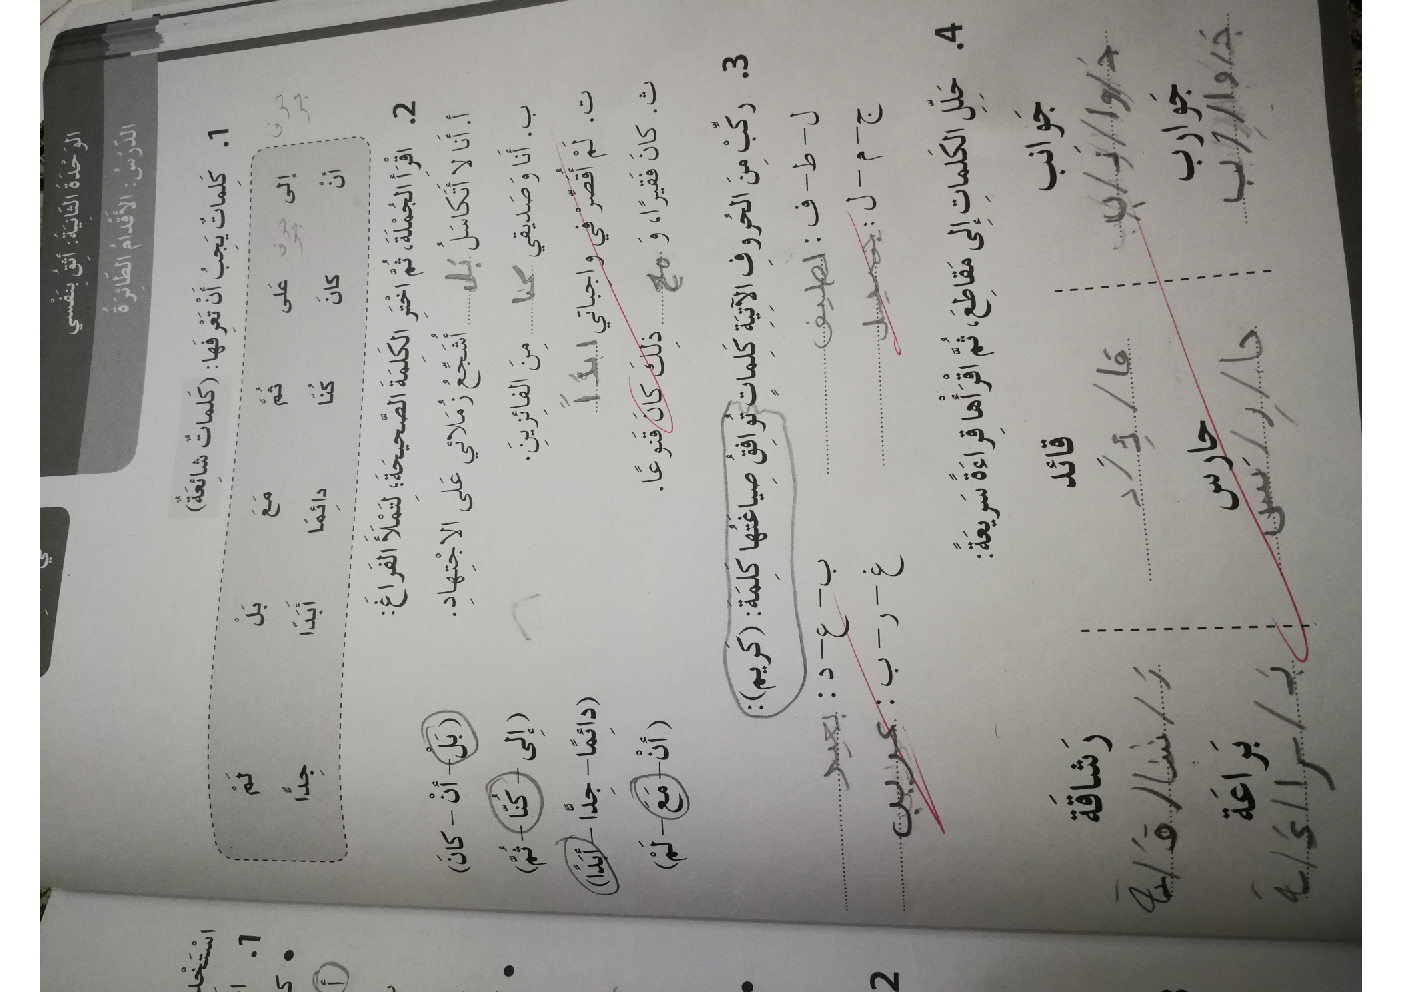 الوَحْدَةُ الثّانِيَةُ: أَثِقُ بِنَفْسي
الدَّرْسُ: الأَقْدامُ الطّائِرَةُ
1. كَلِماتٌ يَجِبُ أَنْ تَعْرِفَها: (كَلِماتٌ شائِعَةٌ)
إلى عَلى ثُمَّ مَعَ بَلْ لَمْ
أَنْ كانَ كُنّا دائِمًا أَبَدًا جِدًّا
2. اقْرَأِ الجُمْلَةَ، ثُمَّ اخْتَرِ الكَلِمَةَ الصَّحيحَةَ؛ لِتَمْلَأَ الفَراغَ:
أ. أَنا لا أَتَكاسَلُ بل أُشَجِّعُ زُمَلائي عَلى الاجْتِهادِ. (بَلْ – أَنْ – كانَ)
ب. أَنا وَصَديقي كنا مِنَ الفائِزينَ. (إِلى – كُنّا – ثُمَّ)
ت. لَمْ أُقَصِّرْ في واجِباتي ابداً (دائِمًا – جِدًّا – أَبَدًا)
ث. كانَ فَقيرًا، وَ مع ذلِكَ كانَ قَنوعًا. (أَنْ – مَعَ – لَمْ)
3. رَكِّبْ مِنَ الحُروفِ الآتِيَةِ كَلِماتٍ تُوافِقُ صِياغَتُها كَلِمَةَ: (كَريم):
ل – ط – ف : لطيف ب – ع – د : بعيد
ج – م – ل : جميل غ – ر – ب : غريب
4. حَلِّلِ الكَلِماتِ إِلى مَقاطِعَ، ثُمَّ اقْرَأْها قِراءَةً سَريعَةً:
جَوانِب قائد رَشاقَة
جَ/وا/نِ/ب قا/ئِ/د رَ/شا/قَ/ة
جَوارِب حارس بَراعَة
جَ/وا/رِ/ب حا/رِ/س بَ/را/عَ/ة
1.
2